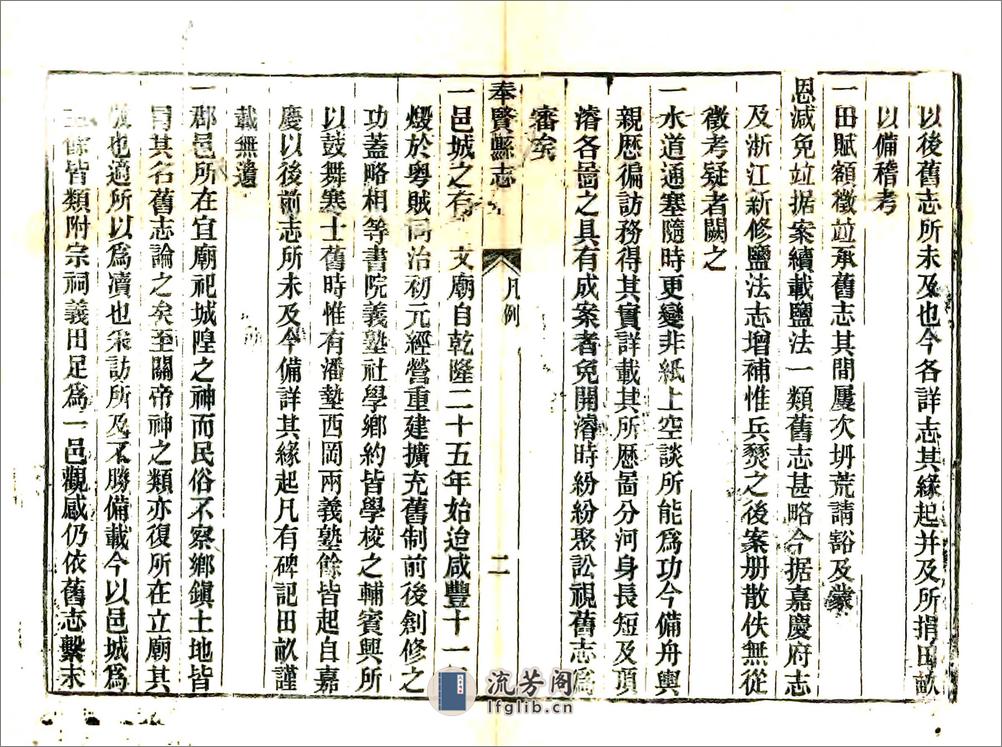 以後舊志所未及也今各詳志其緣起并及所捐田畝
以備稽考
一田賦額徵竝承舊志其間屢次坍荒請豁及蒙
恩減免竝据案續載鹽法一類舊志甚略今据嘉慶府志
及浙江新修鹽法志增補惟兵燹之後案册散佚無從
徵考疑者闕之
一水道通塞隨時更變非紙上空談所能爲功今備舟輿
親歷徧訪務得其實詳載其所歷啚分河身長短及項
濬各啚之具有成案者免開濬時紛紛聚訟視舊志爲
審矣
奉賢縣志
凡例
二
一邑城之有
文廟自乾隆二十五年始迨咸豐十一
燬於粵賊同治初元經營重建擴充舊制前後創修之
功蓋略相等書院義塾社學鄉約皆學校之輔賓興所
以鼓舞寒士舊時惟有潘墊西岡兩義塾餘皆起自嘉
慶以後前志所未及今備詳其緣起凡有碑記田畝謹
載無遺
一郡邑所在宜廟祀城隍之神而民俗不察鄉鎭土地皆
冐其名舊志論之矣至關帝神之類亦復所在立廟其
也適所以爲瀆也采訪所及不勝備載今以邑城爲
主餘皆類附宗祠義田足爲一邑觀感仍依舊志繫末
流芳阁
lfglib.cn